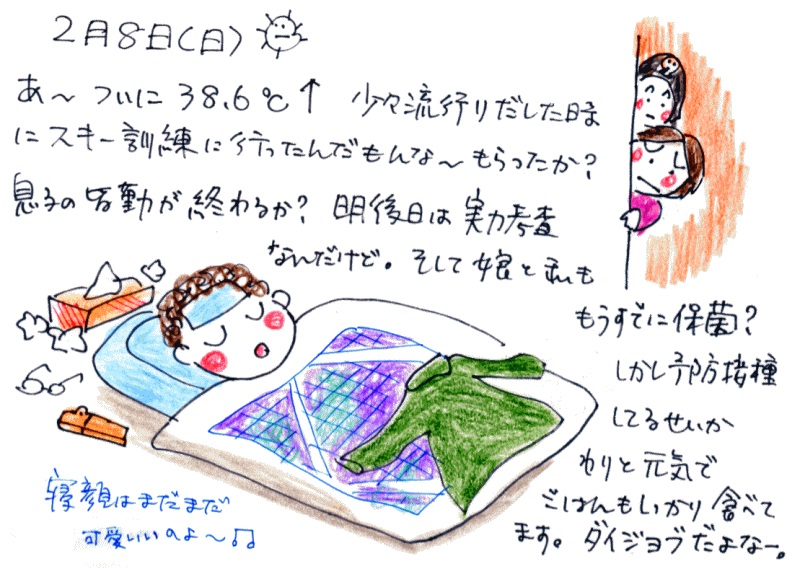 2月8日(日)
あ～ついに38.6℃↑ 少々流行りだした時
にスキー訓練に行ったんだもんな～もらったか?
息子の皆勤が終わるか? 明後日は実力考査
なんだけど。そして娘と私も
もうすでに保菌?
しかし予防接種
してるせいか
わりと元気で
ごはんもしっかり食べて
ます。ダイジョブだよなー。
寝顔はまだまだ
可愛いいのよ～♫